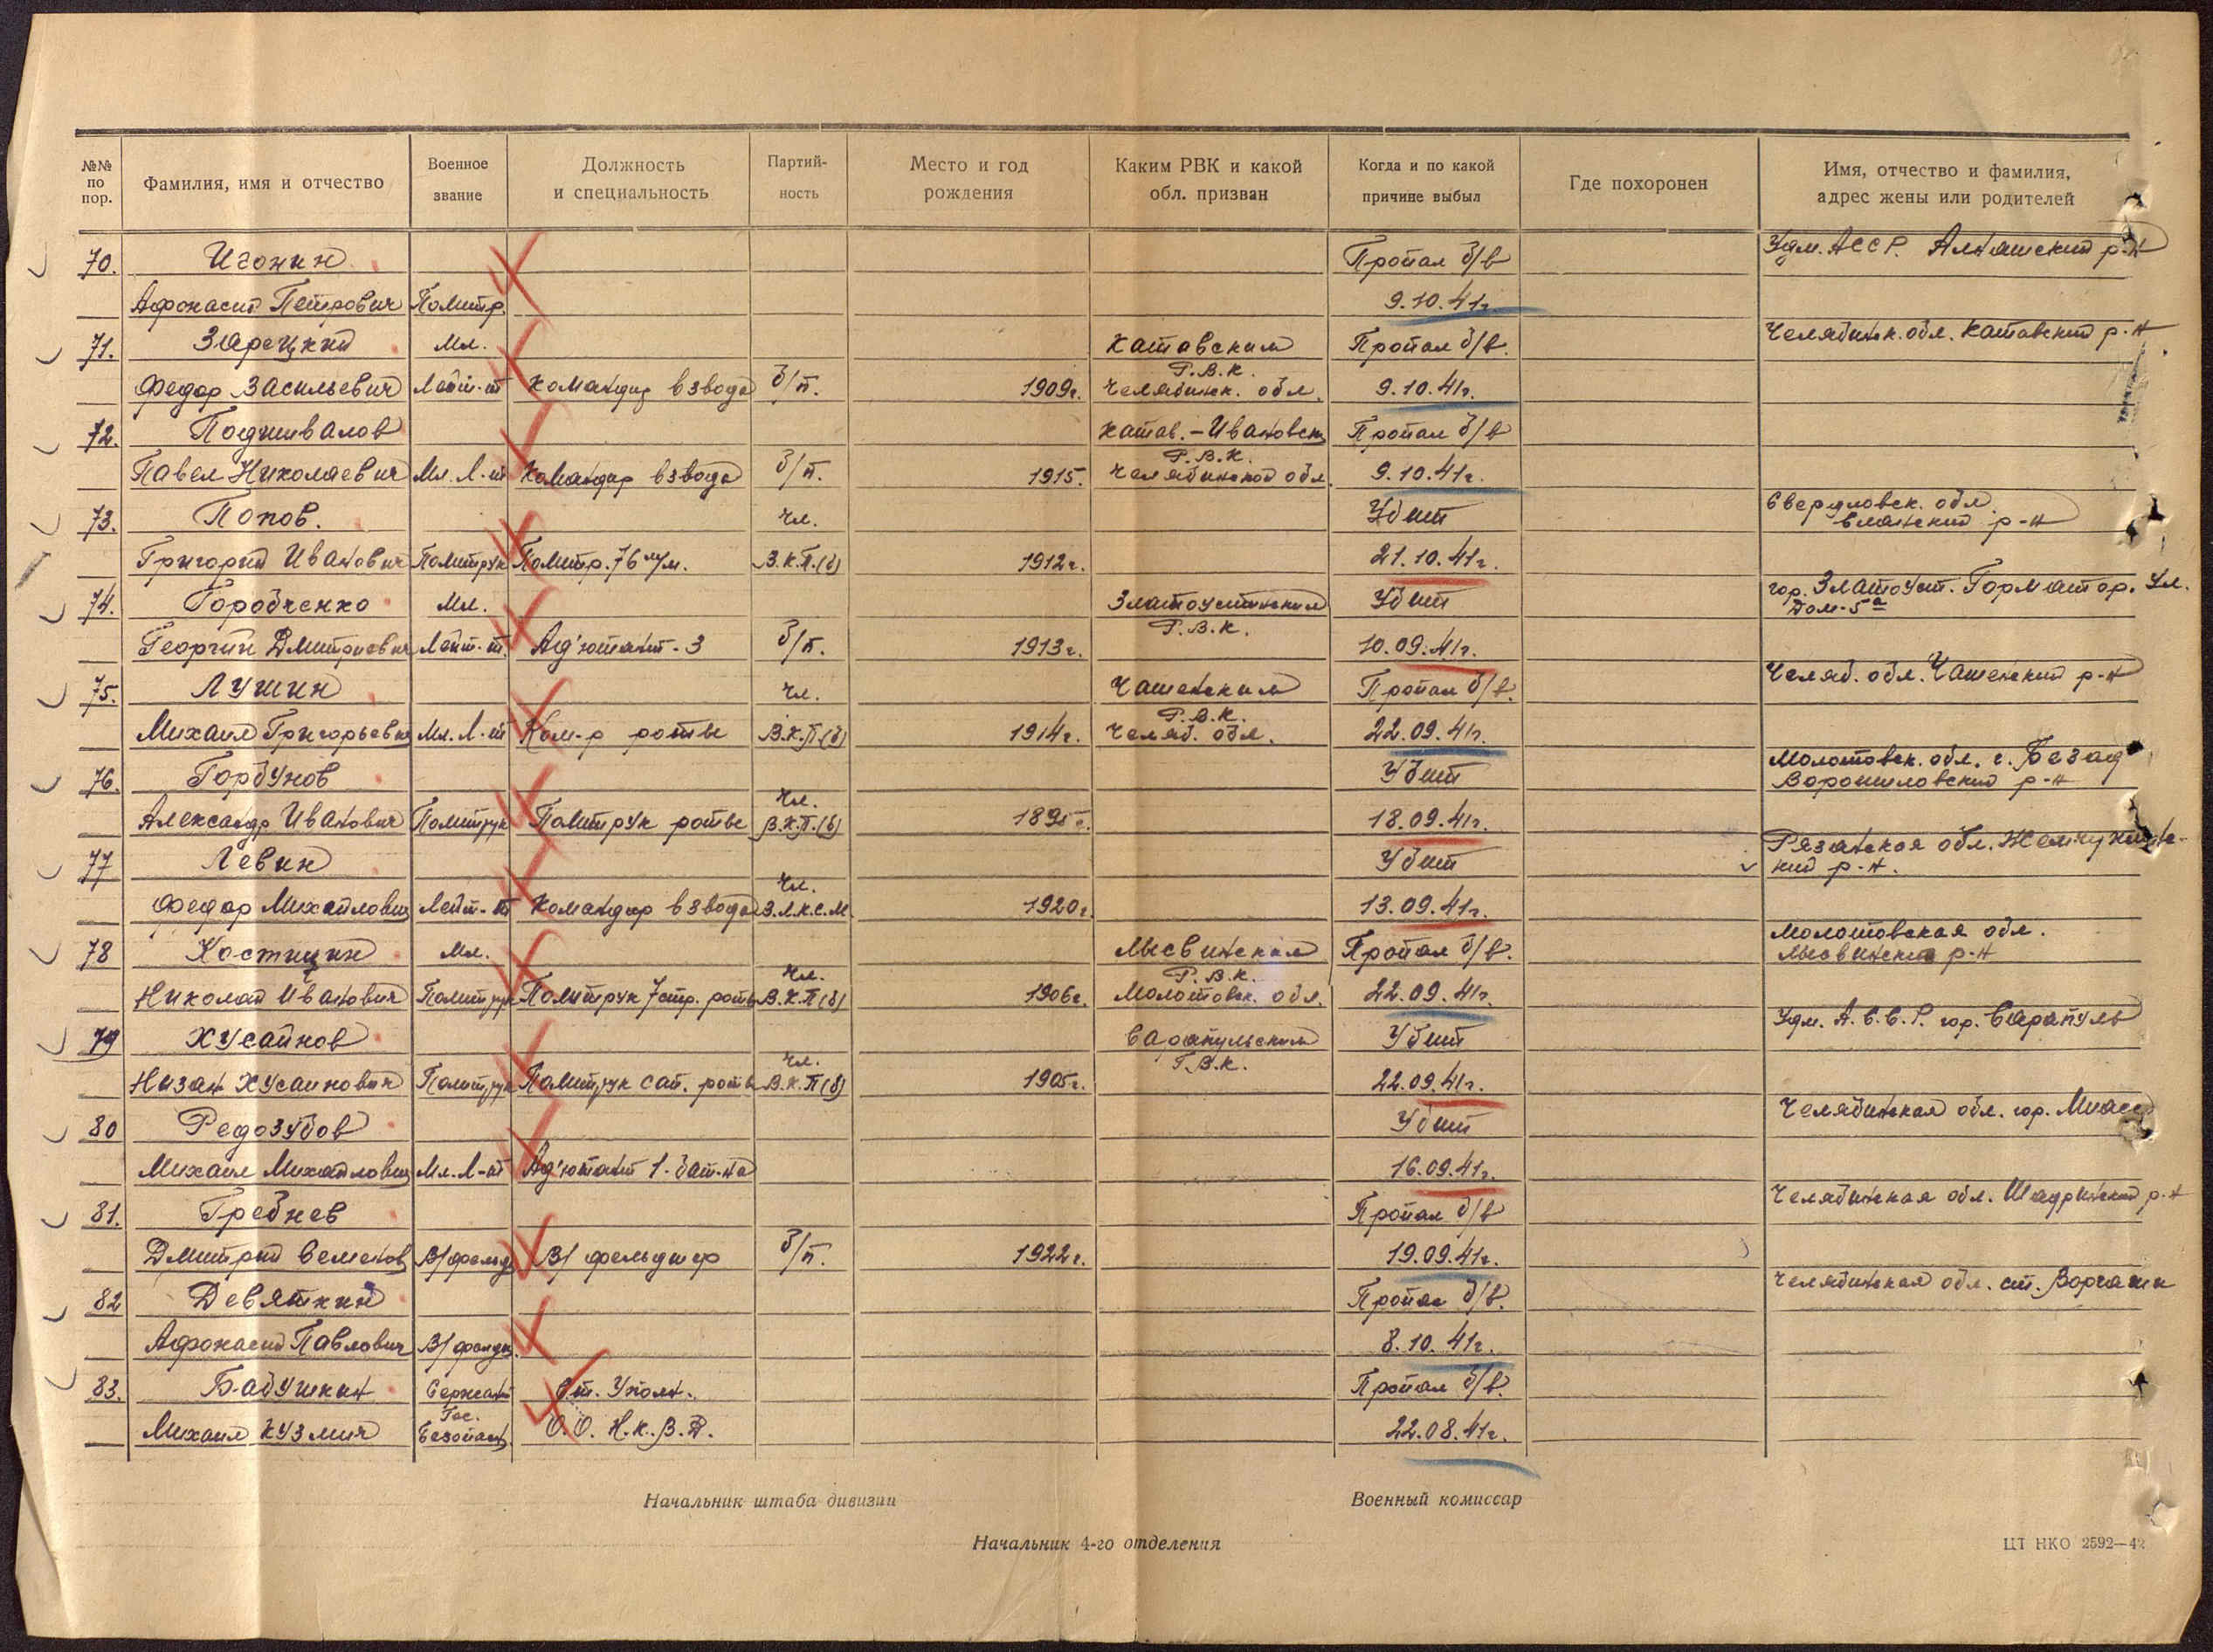 №№ по пор.
Фамилия, имя и отчество
Военное звание
Должность и специальность
Партий-ность
Место и год рождения
Каким РВК и какой обл. призван
Когда и по какой причине выбыл
Где похоронен
Имя, отчество и фамилия, адрес жены или родителей
70. Игонин Пропал б/в Удм. АССР. Алнашский р-н
Афонасий Петрович Политр. 9.10.41г.
71. Зарецкий Мл. Катавским Пропал б/в. Челябинск. обл. Катавский р-н
Р.В.К.
Федор Васильевич Лейт-т Командир взвода б/п. 1909г. Челябинск. обл. 9.10.41г.
72. Подшивалов Катав.-Ивановск Пропал б/в
Р.В.К.
Павел Николаевич Мл. Л-т Командир взвода б/п. 1915. Челябинской обл. 9.10.41г.
73. Попов. чл. Убит Свердловск. обл.
р-н
Григорий Иванович Политрук Политр. 76 м/м. В.К.П.(б) 1912г. 21.10.41г.
74. Городченко Мл. Златоустинским Убит гор. Златоуст. Горматор. Ул.
Р.В.К. Дом-5а
Георгий Дмитриевич Лейт-т. Ад'ютант-3 б/п. 1913г. 10.09.41г.
75. Лушин чл. Чашенским Пропал б/в. Челяб. обл. Чашенский р-н
Р.В.К.
Михаил Григорьевич Мл. Л-т Ком-р роты В.К.П.(б) 1914г. Челяб. обл. 22.09.41г.
76. Горбунов Убит Молотовск. обл. г.
чл. Ворошиловский р-н
Александр Иванович Политрук Политрук роты В.К.П.(б) 18.09.41г.
77 Левин Убит Рязанская обл.
чл. кий р-н.
Федор Михайлович Лейт-т Командир взвода В.Л.К.С.М. 1920г. 13.09.41г.
78 Костицин Мл. Лысвинским Пропал б/в. Молотовская обл.
чл. Р.В.К. Лысвинский р-н
Николай Иванович Политрук Политрук 7 стр. роты В.К.П(б) 1906г. Молотовск. обл. 22.09.41г.
79 Хусаинов Сарапульским Убит Удм. А.С.С.Р. гор. Сарапуль
чл. Г.В.К.
Низан Хусаинович Политрук Политрук сап. роты В.К.П(б) 1905г. 22.09.41г.
80 Редозубов Убит Челябинская обл. гор. Миасс
Михаил Михайлович Мл. Л-т Ад'ютант 1-бат-на 16.09.41г.
81. Гребнев Пропал б/в Челябинская обл. Шадринский р-н
Дмитрий Семенов В/фельд В/фельдшер б/п. 1922г. 19.09.41г.
82 Девяткин Пропал б/в. Челябинская обл. ст.
Афонасий Павлович В/фельдш. 8.10.41г.
83. Бабушкин Сержант Ст. Уполн. Пропал б/в.
Гос.
Михаил Кузмич Безопасн. О.О. Н.К.В.Д. 22.08.41г.
Начальник штаба дивизии Военный комиссар
Начальник 4-го отделения
ЦТ НКО 2592—42